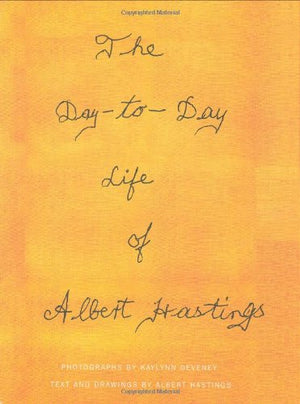 Copyrighted Material
The
Day-to-Day
Life
of
Albert Hastings
PHOTOGRAPHS BY KAYLYNN DEVENEY
TEXT AND DRAWINGS BY ALBERT HASTINGS
Copyrighted Material